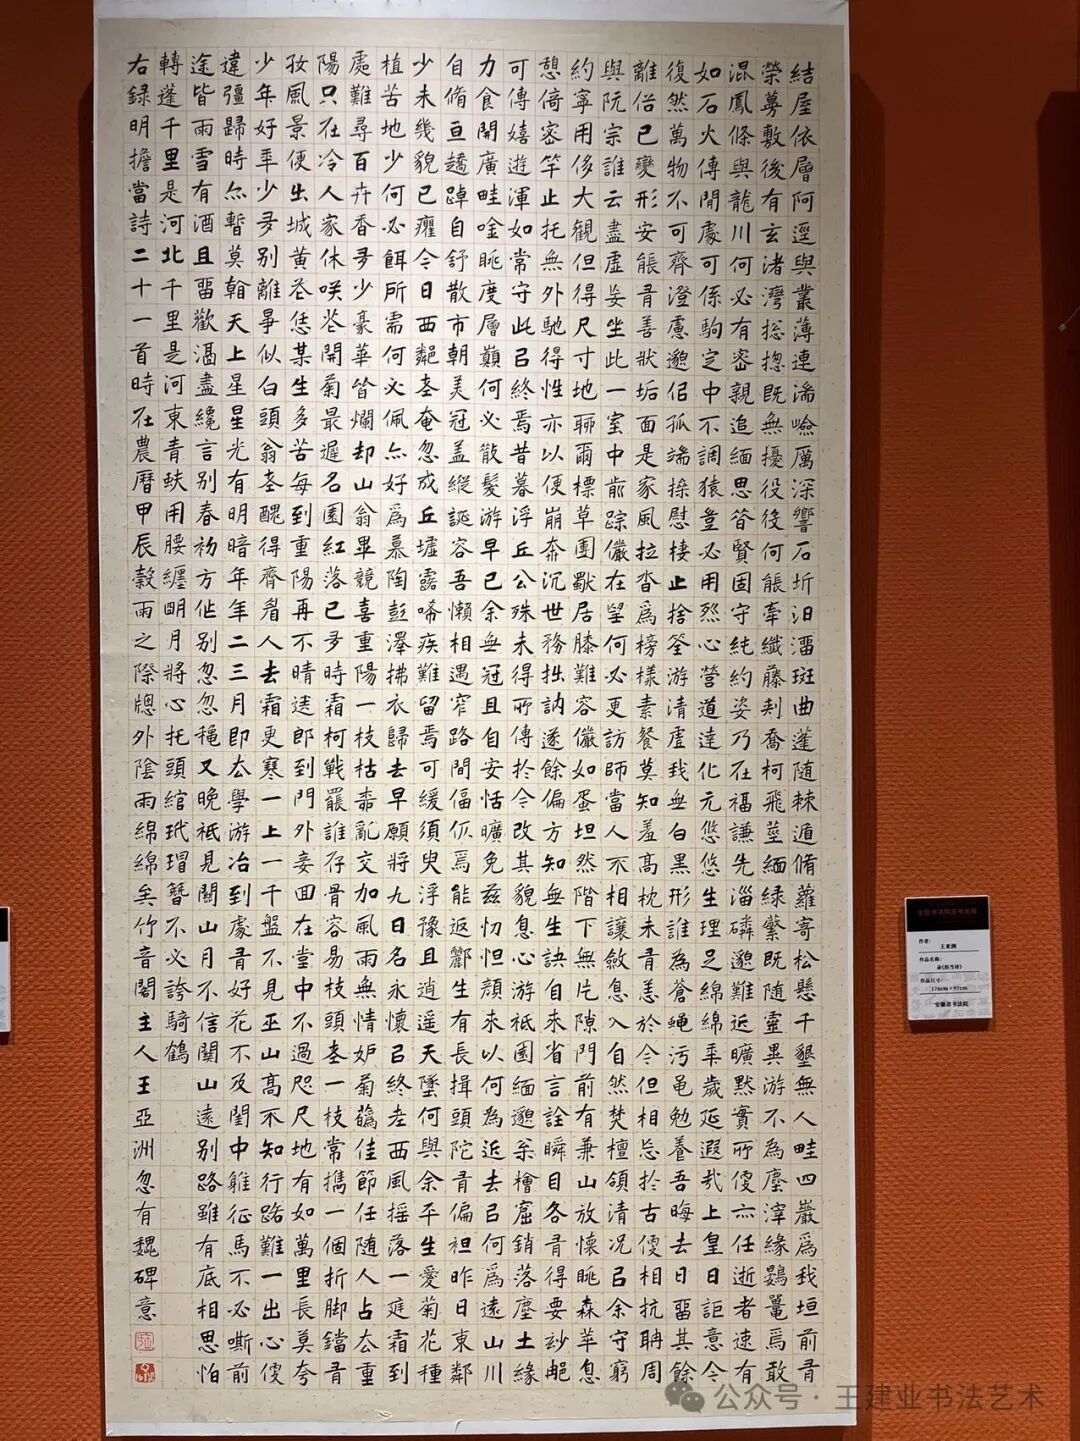 結屋依層阿逕與叢薄連湍嶮厲深響石圻汨澑斑曲蓬随棘遁脩蘿寄松懸千墾無人畦四巖爲我垣前肯
榮蕚敷後有玄渚灣捴揔既無擾役後何能牽纖藤刾喬柯飛莖緬緑蘩既随靈異游不為塵滓緣鷃鼍焉敢
混鳳條與龍川何必有密親追緬思昝賢固守純約姿乃在福謙先淄磷邈難近曠默實所㑓亦任逝者速有
如石火傳閒處可係駒定中不調猿臺必用烈心營道達化元悠悠生理足綿綿年歲延遐哉上皇日詎意今
復然萬物不可齊澄慮邈侣孤端操慰棲止捨筌游清虛我無白黑形誰為蒼蠅污黽勉養吾晦去日留其餘
離俗已變形安能肯善狀垢面是家風拉沓爲榜樣素餐莫知羞高枕未肯恙於今但相忘於古㑓相抗聃周
與阮宗誰云盡虛妄坐此一室中前踪儼在望何必更訪師當人不相讓斂息入自然焚檀領清况㠯余守窮
約寧用侈大觀但得尺寸地聊爾標草團獸居膝難容儼如蛋坦然階下無片隙門前有兼山放懷眺森苹息
憩倚密竿止托無外馳得性亦以便崩奔沉世務拙訥遂餘偏方知無生訣自來省言詮瞬目各肯得要玅絶
可傳嬉遊渾如常守此㠯終焉昔暮浮丘公殊未得所傳於今改其貌息心游祇園緬邈檜窟銷落塵土緣
力食開廣畦唫眺度層巔何必散髮游早已余無冠且自安恬曠免兹忉怛顏未以何為近去㠯何爲遠山川
自脩亘趫踔自舒散市朝美冠盖縱誕容吾懶相遇窄路間偪仄焉能返酈生有長揖頭陀肯偏袒昨日東鄰
少未幾貌已癯今日西鄰耋奄忽成丘墟露晞疾難留焉可緩須臾浮豫且逍遥天墜何與余平生愛菊花種
植苦地少何必餌所需何必佩亦好爲慕陶彭澤拂衣歸去早願將九日名永懷㠯終老西風摇落一庭霜到
處難尋百卉香多少豪華皆爛却山翁畢競喜重陽一枝枯亂交加風雨無情妒菊佳節任随人占太重
陽只在冷人家休咲花開菊最遲名園紅落已多時霜柯戰罷誰存骨容易枝頭耋一枝常擕一個折脚鐺肯
孜風景便出城黄花恁某生多苦每到重陽再不晴逺郎到門外妾回在堂中不過咫尺地有如萬里長莫夸
少年好年少多別離爭似白頭翁耋醜得齊眉人去霜更寒一上一千盤不見巫山高不知行路難一出心㑓
違彊歸時亦暫莫翰天上星星光有明暗年年二三月即太學游冶到處肯好花不及閨中雖征馬不必嘶前
途皆雨雪有酒且留歡温盡纔言別春初方作別忽忽穐又晚祇見關山月不信關山遠別路雖有底相思怕
轉蓬千里是河北千里是河東青軼用腰纏明月將心托頭綰玳瑁簪不必誇騎鶴
右録明擔當詩二十一首時在農曆甲辰穀雨之際牕外陰雨綿綿矣竹音閣主人王亞洲忽有魏碑意
作者：
王亚洲
作品名称：
作品尺寸：
176cm×97cm
安徽省书法院
公众号·王建业书法艺术